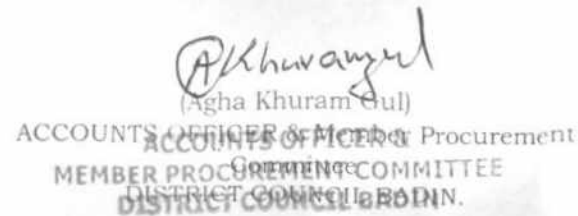 AKhuramgul
(Agha Khuram Gul)
ACCOUNTS OFFICER & Member Procurement
Committee
DISTRICT COUNCIL BADIN.
ACCOUNTS OFFICER &
MEMBER PROCUREMENT COMMITTEE
DISTRICT COUNCIL BADIN